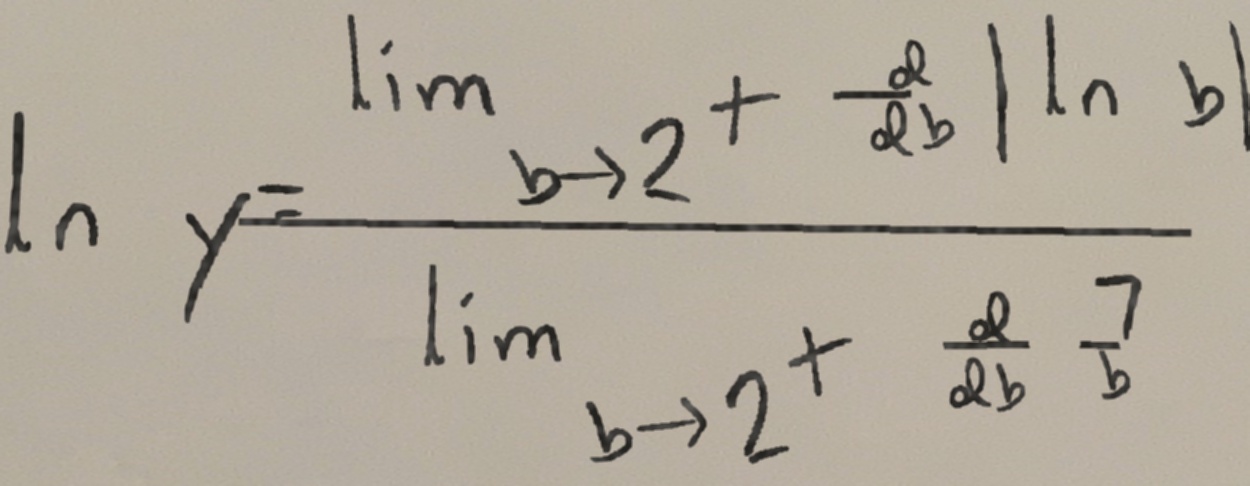 ln y = \frac{\lim_{b \to 2^+} \frac{d}{db} |\ln b|}{\lim_{b \to 2^+} \frac{d}{db} \frac{7}{b}}